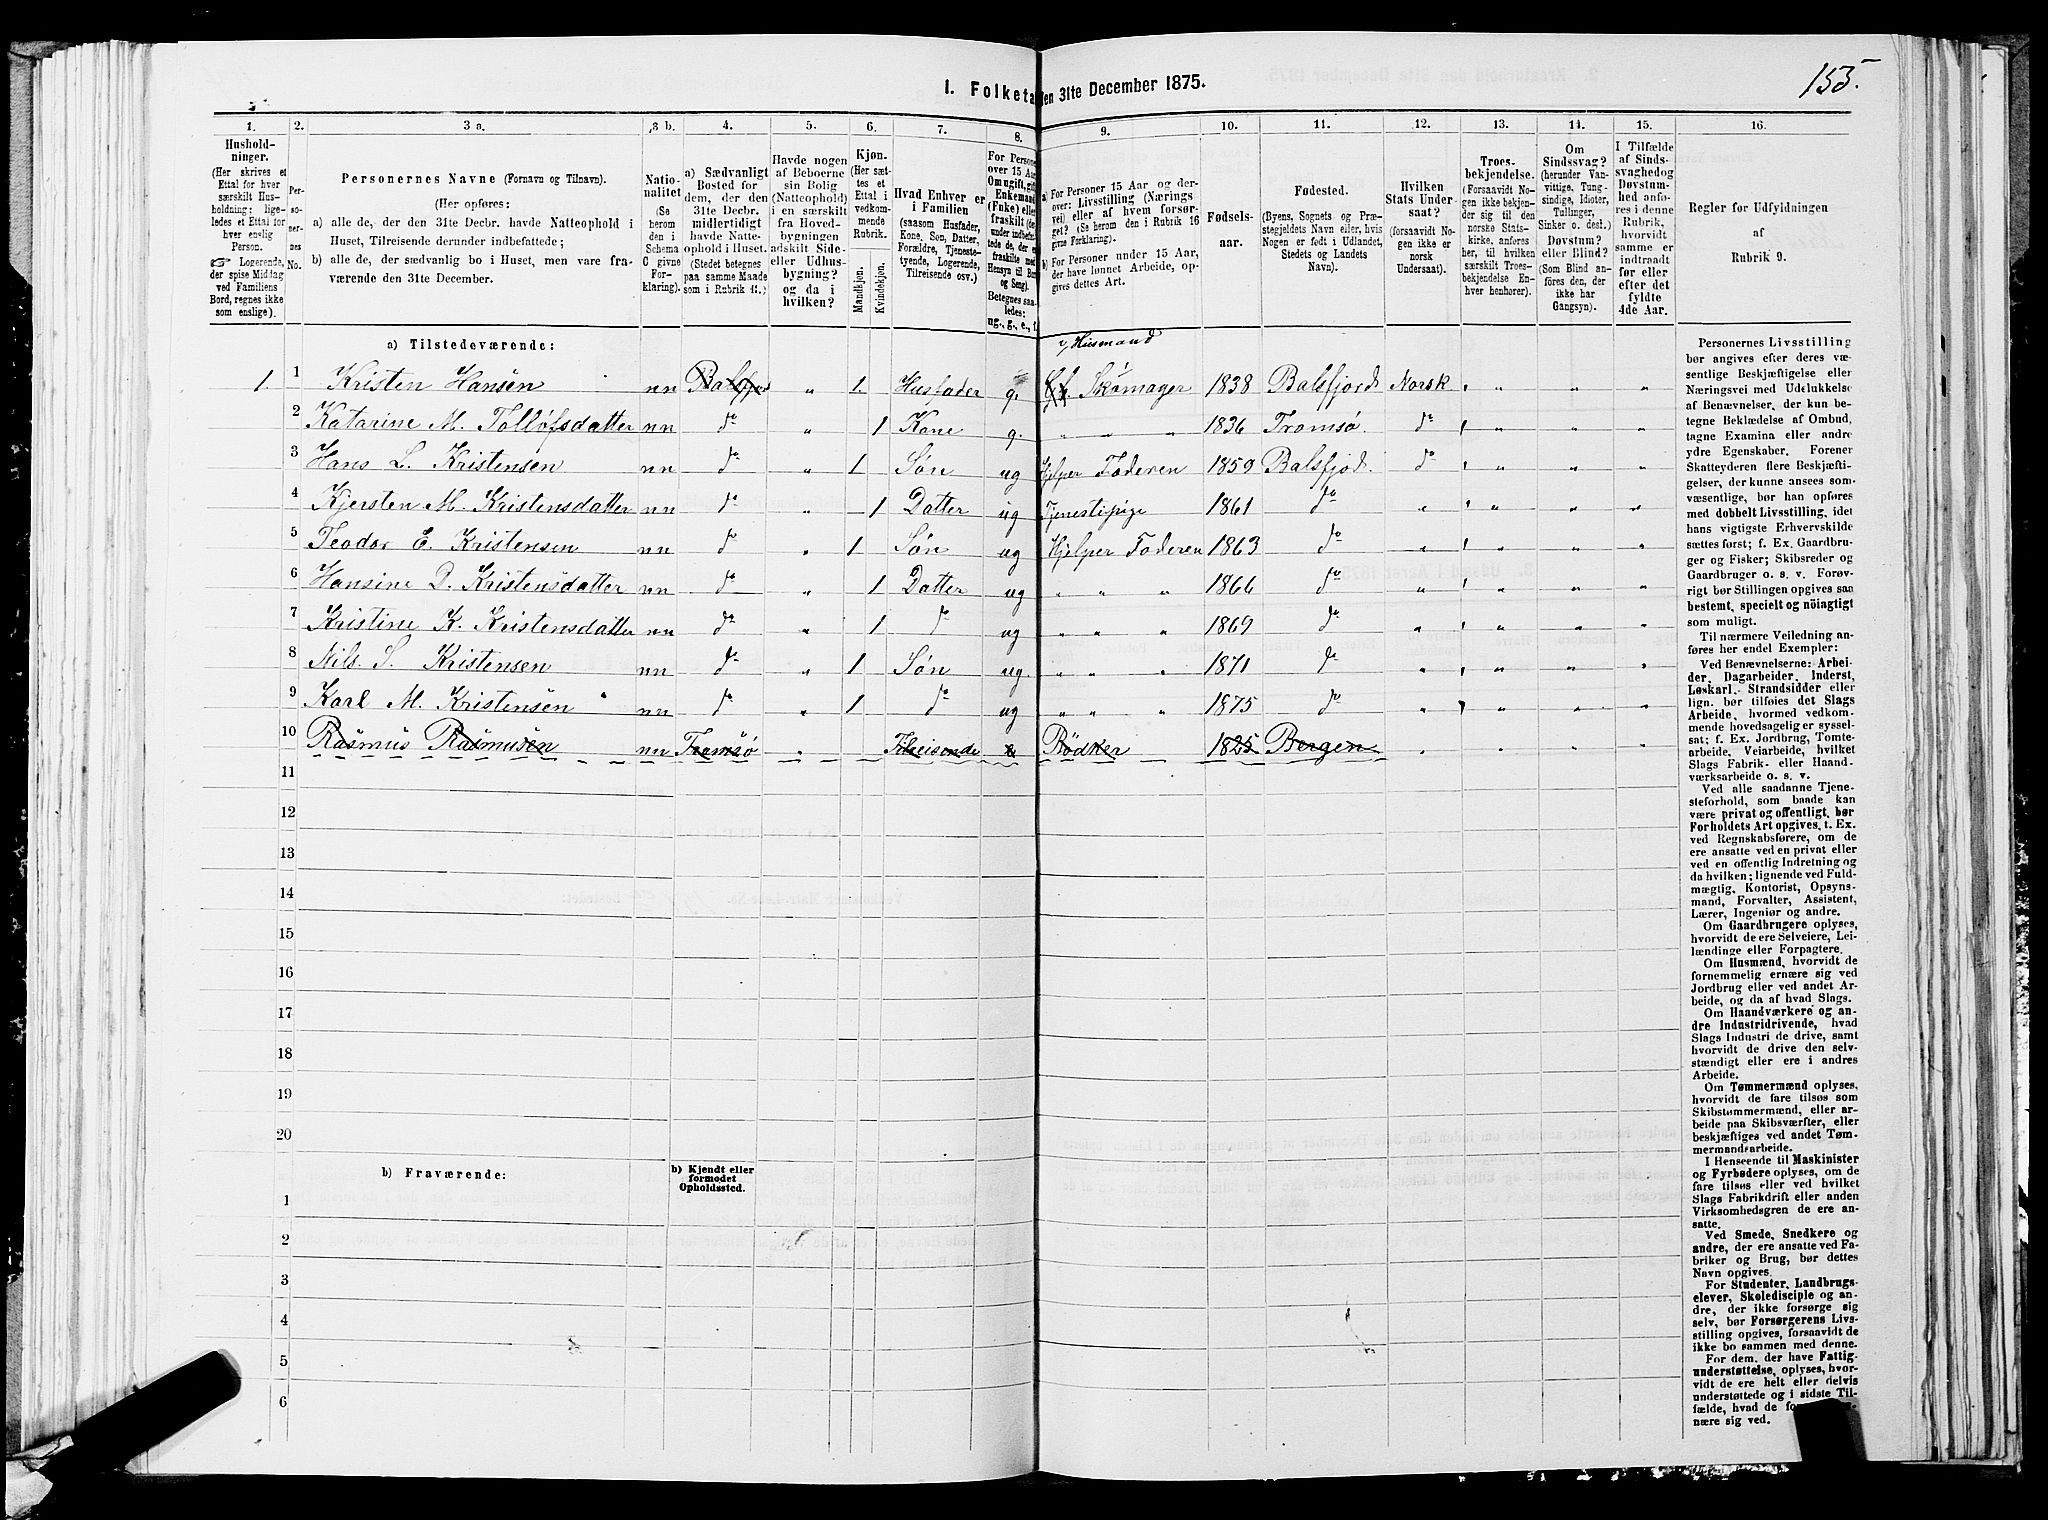 155.
I. Folketa
den 31te December 1875.
1.
2.
3 a.
3 b.
4.
5.
6.
7.
8.
9.
10.
11.
12.
13.
14.
15.
16.
Husholdninger.
(Her skrives et
Ettal for hver
særskilt Husholdning;
ligeledes et Ettal for
hver enslig
Person.
☞ Logerende,
der spise Middag
ved Familiens
Bord, regnes ikke
som enslige).
Personernes
No.
Personernes Navne (Fornavn og Tilnavn).
(Her opføres:
a) alle de, der den 31te Decbr. havde Natteophold i
Huset, Tilreisende derunder indbefattede;
b) alle de, der sædvanlig bo i Huset, men vare fraværende
den 31te December.
Nationalitet
(Se
herom
den i
Schema
C givne
Forklaring).
a) Sædvanligt
Bosted for
dem, der den
31te Decbr.
midlertidigt
havde Natteophold
i Huset.
(Stedet betegnes
paa samme Maade
som i Rubrik 11.)
Havde nogen
af Beboerne
sin Bolig
(Natteophold)
i en særskilt
fra Hovedbygningen
adskilt Side-
eller Udhusbygning?
og da i
hvilken?
Kjøn.
(Her sættes
et
Ettal i
vedkommende
Rubrik.
Mandkjøn.
Kvindekjøn.
Hvad Enhver er
i Familien
(saasom Husfader,
Kone, Søn, Datter,
Forældre, Tjenestetyende,
Logerende,
Tilreisende osv.)
For Personer
over 15 Aar
Om ugift, gift
Enkemand
(Enke) eller
fraskilt
Betegnes saaledes:
ug., g., e., f.
a) For Personer 15 Aar og derover:
Livsstilling (Nærings
vei) eller af hvem forsørget?
(Se herom den i Rubrik 16
givne Forklaring).
b) For Personer under 15 Aar,
der have lønnet Arbeide, opgives
dettes Art.
Fødselsaar.
Fødested.
(Byens, Sognets og Præstegjeldets
Navn eller, hvis
Nogen er født i Udlandet,
Stedets og Landets
Navn).
Hvilken
Stats Undersaat?
(forsaavidt Nogen
ikke er
norsk
Undersaat).
Troesbekjendelse.
(Forsaavidt Nogen
ikke bekjender
sig til den
norske Statskirke,
anføres
her, til hvilken
særskilt Troesbekjendelse
Enhver
henhører).
Om
Sindssvag?
(herunder Vanvittige,
Tungsindige,
Idioter,
Tullinger,
Sinker o. desl.)
Døvstum?
eller Blind?
(Som Blind anføres
den, der
ikke har
Gangsyn).
I Tilfælde
af Sindssvaghed
og
Døvstumhed
anføres
i denne
Rubrik,
hvorvidt
samme er
indtraadt
før eller
efter det
fyldte
4de Aar.
Regler for Udfyldningen
af
Rubrik 9.
a) Tilstedeværende:
Husmand
1. 1 Kristen Hansen nn Balsfjord „ 1. Husfader g. Skömager 1838 Balsfjord Norsk
2 Katarine M. Tollöfsdatter nn do „ 1 Kone g. „ „ „ 1836 Tromsö. do
3 Hans L. Kristensen nn do „ 1 Sön ug Hjelper Faderen 1859 Balsfjod. do
4 Kjersten M. Kristensdatter nn do „ 1 Datter ug Tjenestepige 1861 do „
5 Teodor E. Kristensen nn do „ 1 Sön ug Hjelper Faderen 1863 do „
6 Hansine D. Kristensdatter nn do „ 1 Datter ug „ „ „ 1866 do „
7 Kristine K. Kristensdatter nn do „ 1 do ug „ „ „ 1869 do „
8 Nils. S. Kristensen nn do „ 1 Sön ug. „ „ „ 1871 do „
9 Karl M. Kristensen nn do „ 1 do ug „ „ „ 1875 do „
10 Rasmus Rasmusen nn Tromsö „ Tilreisende Bödker 1825 Bergen „
11
12
13
14
15
16
17
18
19
20
b) Fraværende:
b) Kjendt eller
formodet
Opholdssted.
1
2
3
4
5
6
Personernes Livsstilling
bør angives efter deres væsentlige
Beskjæftigelse eller
Næringsvei med Udelukkelse
af Benævnelser, der kun betegne
Beklædelse af Ombud,
tagne Examina eller andre
ydre Egenskaber. Forener
Skatteyderen flere Beskjæftigelser,
der kunne ansees som
væsentlige, bør han opføres
med dobbelt Livsstilling, idet
hans vigtigste Erhvervskilde
sættes først; f. Ex. Gaardbruger
og Fisker; Skibsreder og
Gaardbruger o. s. v. Forøvrigt
bør Stillingen opgives saa
bestemt, specielt og nöiagtigt
som muligt.
Til nærmere Veiledning anføres
her endel Exempler:
Ved Benævnelserne: Arbeider,
Dagarbeider, Inderst,
Løskarl, Strandsidder eller
lign. bør tilføies det Slags
Arbeide, hvormed vedkommende
hovedsagelig er sysselsat;
f. Ex. Jordbrug, Tomtearbeide,
Veiarbeide, hvilket
Slags Fabrik- eller Haandværksarbeide
o. s. v.
Ved alle saadanne Tjenesteforhold,
som baade kan
være privat og offentligt, bør
Forholdets Art opgives, t. Ex.
ved Regnskabsførere, om de
ere ansatte ved en privat eller
ved en offentlig Indretning og
da hvilken; lignende ved Fuldmægtig,
Kontorist, Opsynsmand,
Forvalter, Assistent,
Lærer, Ingeniør og andre.
Om Gaardbrugere oplyses,
hvorvidt de ere Selveiere, Leilændinge
eller Forpagtere.
Om Husmænd, hvorvidt de
fornemmelig ernære sig ved
Jordbrug eller ved andet Arbeide,
og da af hvad Slags.
Om Haandværkere og andre
Industridrivende, hvad
Slags Industri de drive, samt
hvorvidt de drive den selvstændigt
eller ere i andres
Arbeide.
Om Tømmermænd oplyses,
hvorvidt de fare tilsøs som
Skibstømmermænd, eller arbeide
paa Skibsværfter, eller
beskjæftiges ved andet Tømmermandsarbeide.
I Henseende til Maskinister
og Fyrbødere oplyses, om de
fare tilsøs eller ved hvilket
Slags Fabrikdrift eller anden
Virksomhedsgren de ere ansatte.
Ved Smede, Snedkere og
andre, der ere ansatte ved Fabriker
og Brug, bør dettes
Navn opgives.
For Studenter, Landbrugselever,
Skoledisciple og andre,
der ikke forsørge sig
selv, bør Forsørgerens Livsstilling
opgives, forsaavidt de
ikke bo sammen med denne.
For dem, der have Fattigunderstøttelse,
oplyses, hvorvidt
de ere helt eller delvis
understøttede og i sidste Tilfælde,
hvad de
nære sig ved.